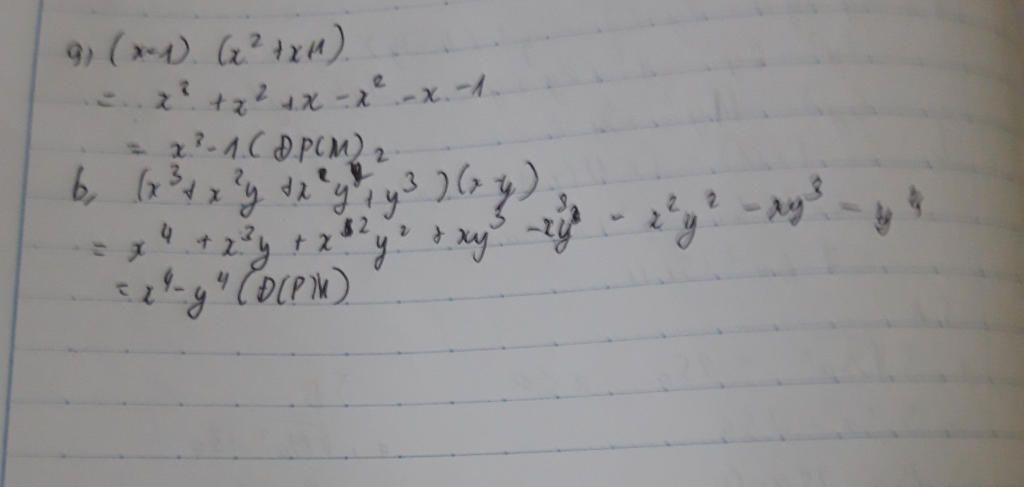 a, (x-1) (x² + x+1)
= x³ + x² + x - x² - x - 1
= x³ - 1 (ĐPCM)
b, (x³ + x²y + x y² + y³) (x-y)
= x⁴ + x³y + x²y² + xy³ - x³y - x²y² - xy³ - y⁴
= x⁴ - y⁴ (ĐCPM)